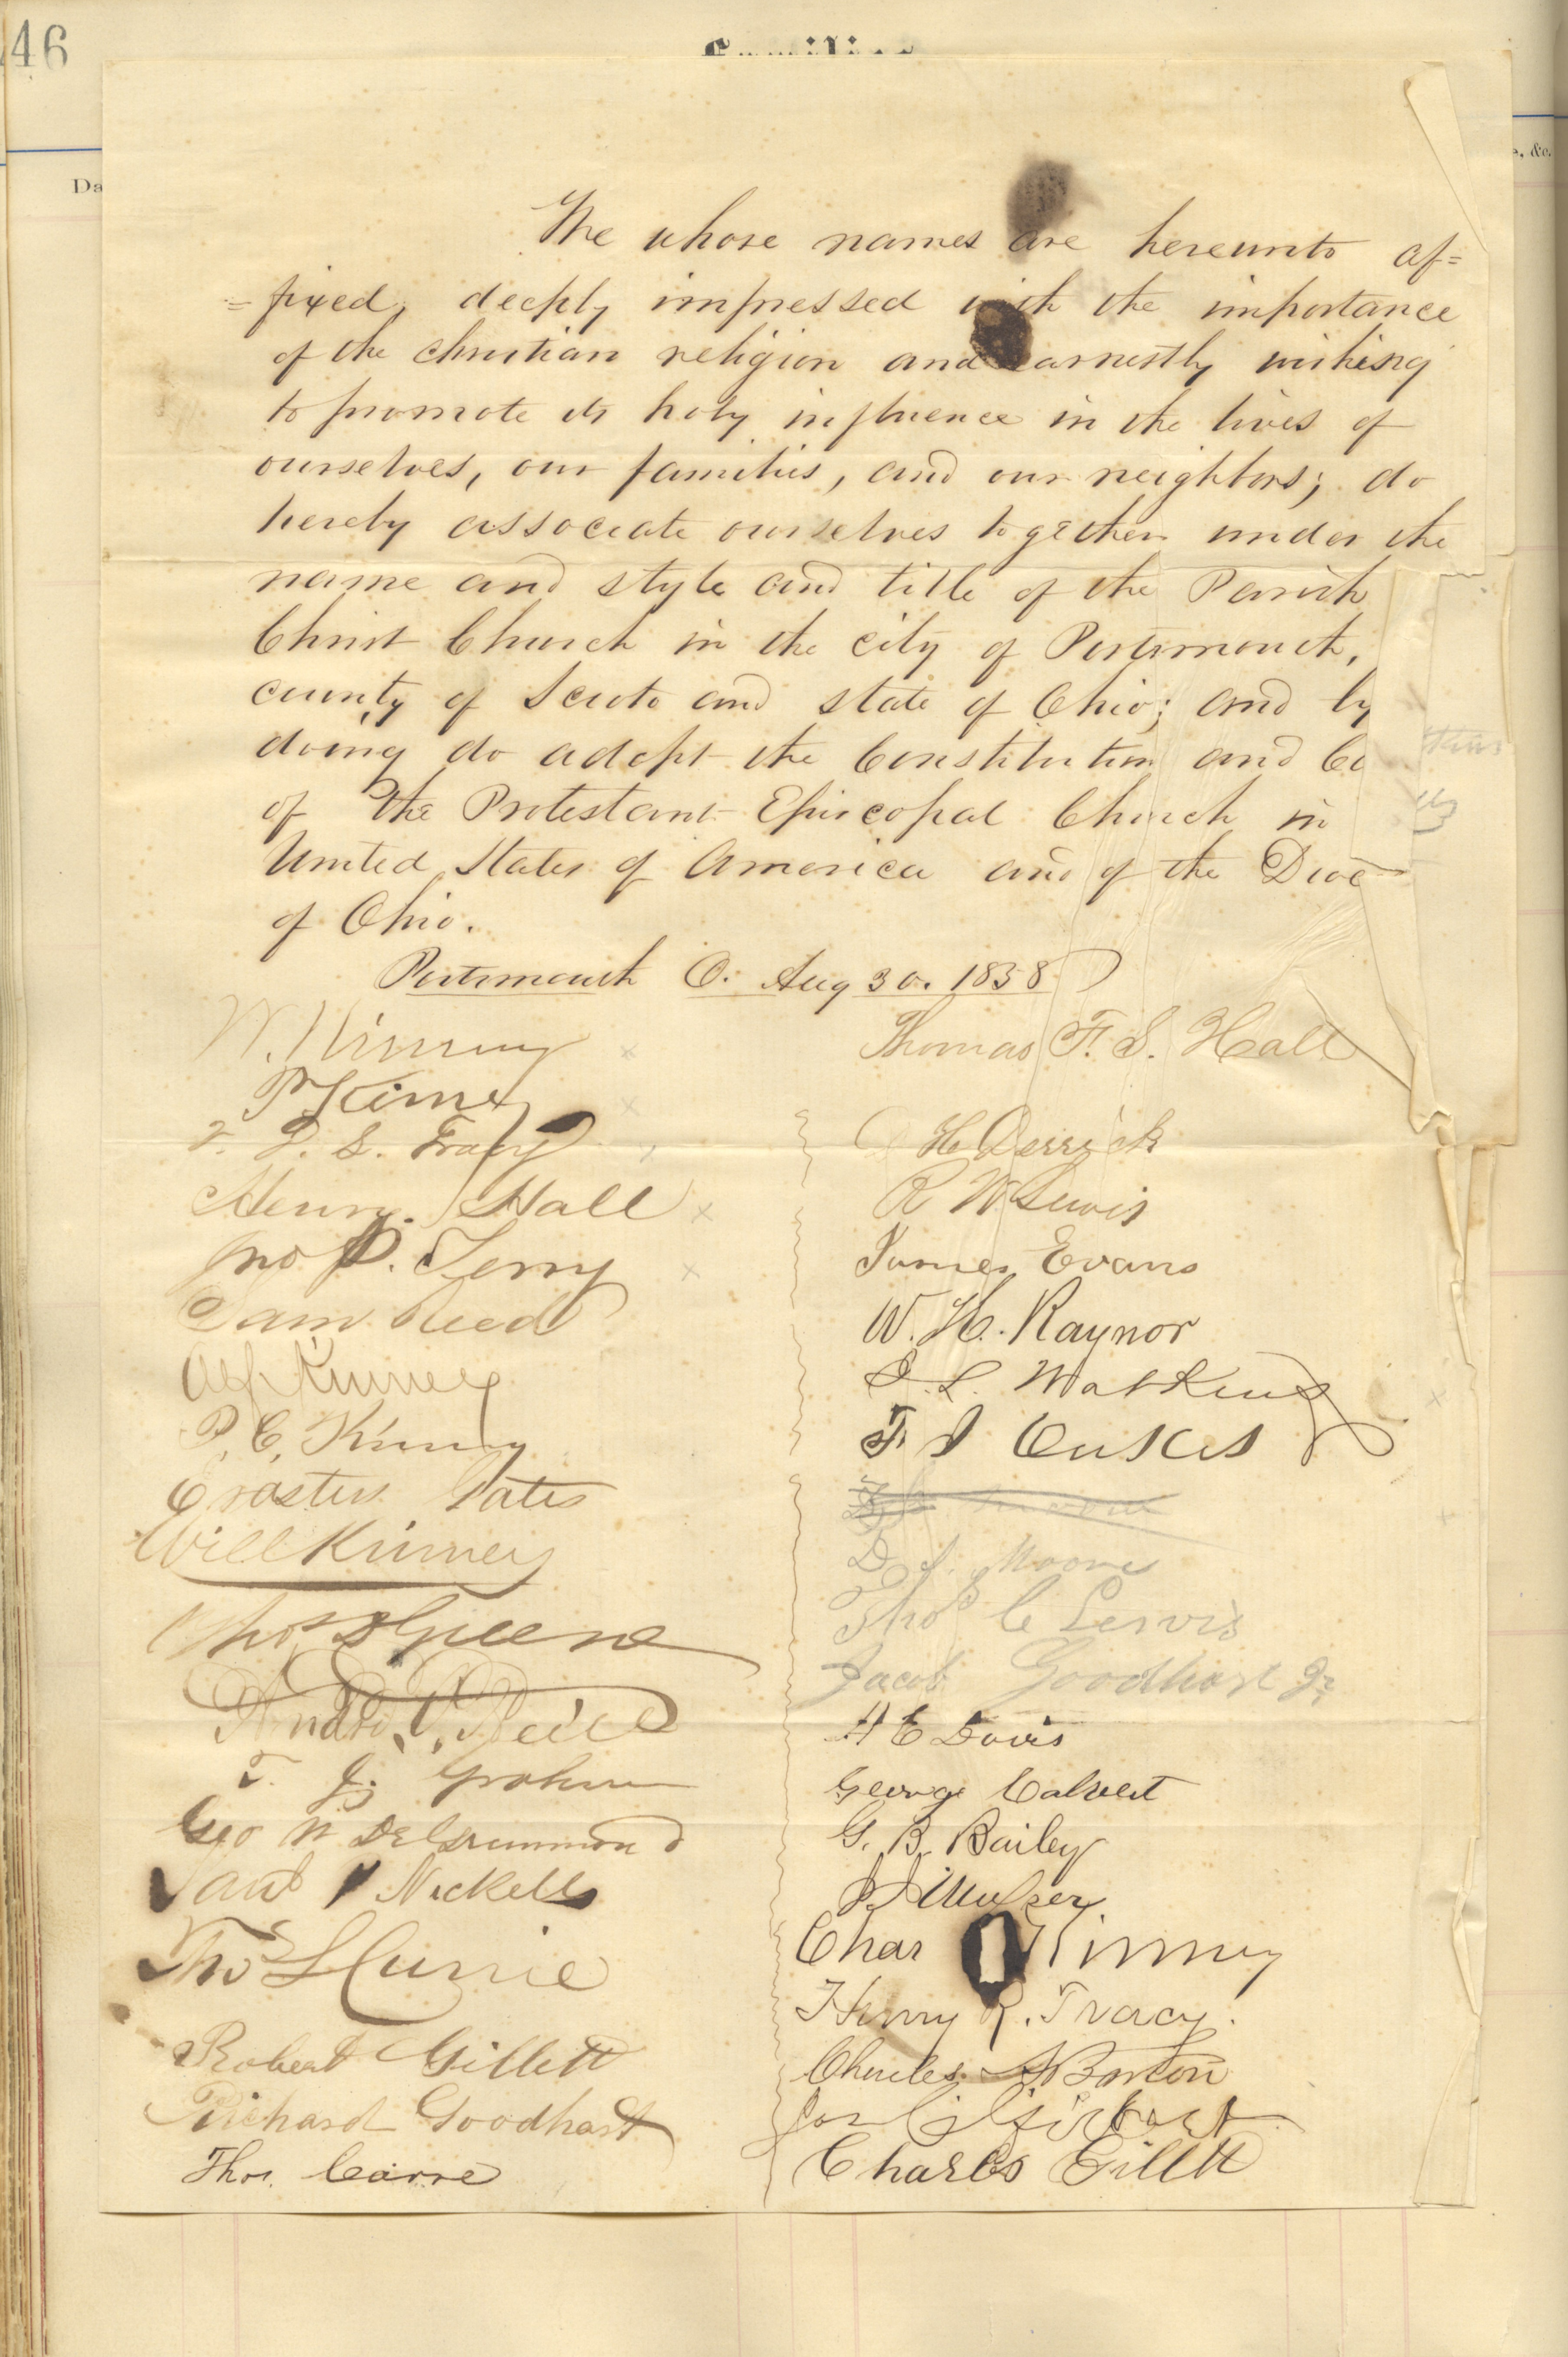 46
Da
e, &c.
We whose names are hereunto af=
=fixed, deeply impressed with the importance
of the christian religion and earnestly wishing
to promote its holy influence in the lives of
ourselves, our families, and our neighbors; do
hereby associate ourselves together under the
name and style and title of the Parish
Christ Church in the city of Portsmouth,
county of Scioto and state of Ohio; and by
doing do adopt the Constitution and Ca
of the Protestant Episcopal Church in
United States of America and of the Dioc
of Ohio.
Portsmouth O. Aug 30. 1858
W. Kinney
P Kinney
F. D. S. Tracy
Henry Hall
Jno P. Terry
Sam Reed
Alf Kinney
P. C. Kinney
Erastus Gates
Will Kinney
Thos S Greene
T. J. Graham
Geo W
Nickells
Thos S Currie
Robert Gillett
Richard Goodhart
Thos. Carre
Thomas F. S. Hall
H Derrick
R W Lewis
James Evans
W. H. Raynor
S. L. Watkins
T. J
D. S. Moore
Thos C Lewis
Jacob Goodhart Jr
H E Davis
George Calvert
G. B. Bailey
Chas Kinney
Henry R. Tracy.
Charles A Barton
Charles Gillett